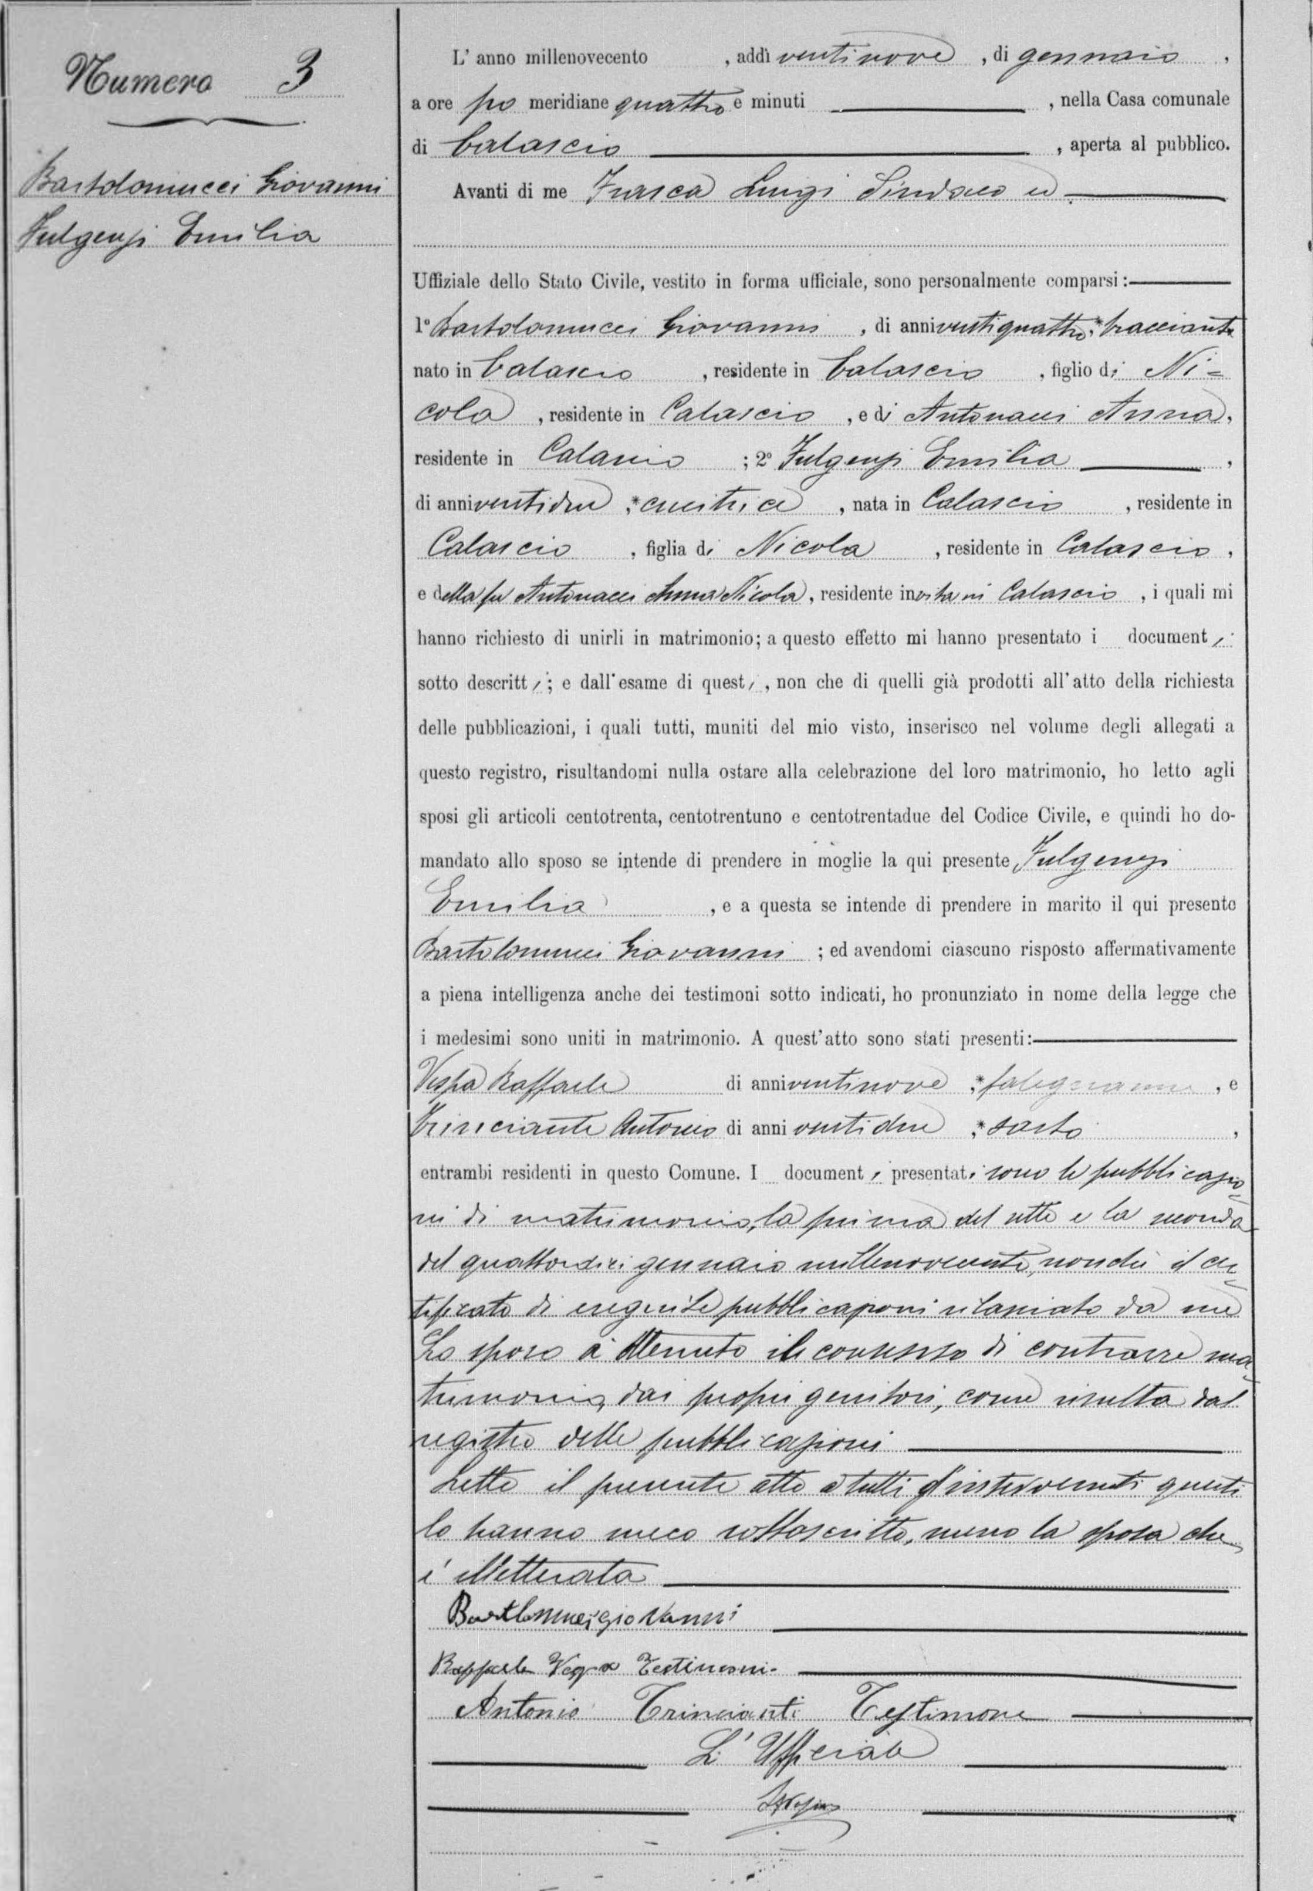 Numero 3
Bartolomucci Giovanni
Fulgenzi Emilia
L' anno millenovecento , addì ventinove , di gennaio ,
a ore po meridiane quattro e minuti , nella Casa comunale
di Calascio , aperta al pubblico.
Avanti di me Frasca Luigi Sindaco ed
Uffiziale dello Stato Civile, vestito in forma ufficiale, sono personalmente comparsi:
1º Bartolomucci Giovanni , di anni ventiquattro, * bracciante
nato in Calascio , residente in Calascio , figlio di Ni=
cola , residente in Calascio , e di Antonacci Anna ,
residente in Calascio ; 2º Fulgenzi Emilia ,
di anni ventidue , * cucitrice , nata in Calascio , residente in
Calascio , figlia di Nicola , residente in Calascio ,
e della fu Antonacci Anna Nicola , residente in vita in Calascio , i quali mi
hanno richiesto di unirli in matrimonio; a questo effetto mi hanno presentato i document i
sotto descritt i ; e dall'esame di quest i , non che di quelli già prodotti all'atto della richiesta
delle pubblicazioni, i quali tutti, muniti del mio visto, inserisco nel volume degli allegati a
questo registro, risultandomi nulla ostare alla celebrazione del loro matrimonio, ho letto agli
sposi gli articoli centotrenta, centotrentuno e centotrentadue del Codice Civile, e quindi ho do-
mandato allo sposo se intende di prendere in moglie la qui presente Fulgenzi
Emilia , e a questa se intende di prendere in marito il qui presente
Bartolomucci Giovanni ; ed avendomi ciascuno risposto affermativamente
a piena intelligenza anche dei testimoni sotto indicati, ho pronunziato in nome della legge che
i medesimi sono uniti in matrimonio. A quest'atto sono stati presenti:
Vespa Raffaele di anni ventinove , * falegname , e
Trinciante Antonio di anni ventidue , * sarto ,
entrambi residenti in questo Comune. I document i presentat i sono le pubblicazio-
ni di matrimonio, la prima del sette e la seconda
del quattordici gennaio millenovecento, nonchè il cer-
tificato di eseguite pubblicazioni rilasciato da me
Lo sposo à ottenuto il consenso di contrarre ma-
trimonio, dai propri genitori, come risulta dal
registro delle pubblicazioni
Letto il presente atto a tutti gl'intervenuti questi
lo hanno meco sottoscritto, meno la sposa che
è illetterata
Bartlomuci giovanni
Raffaele Vespa Testimoni.
Antonio Trincianti Testimone
L' Ufficiale